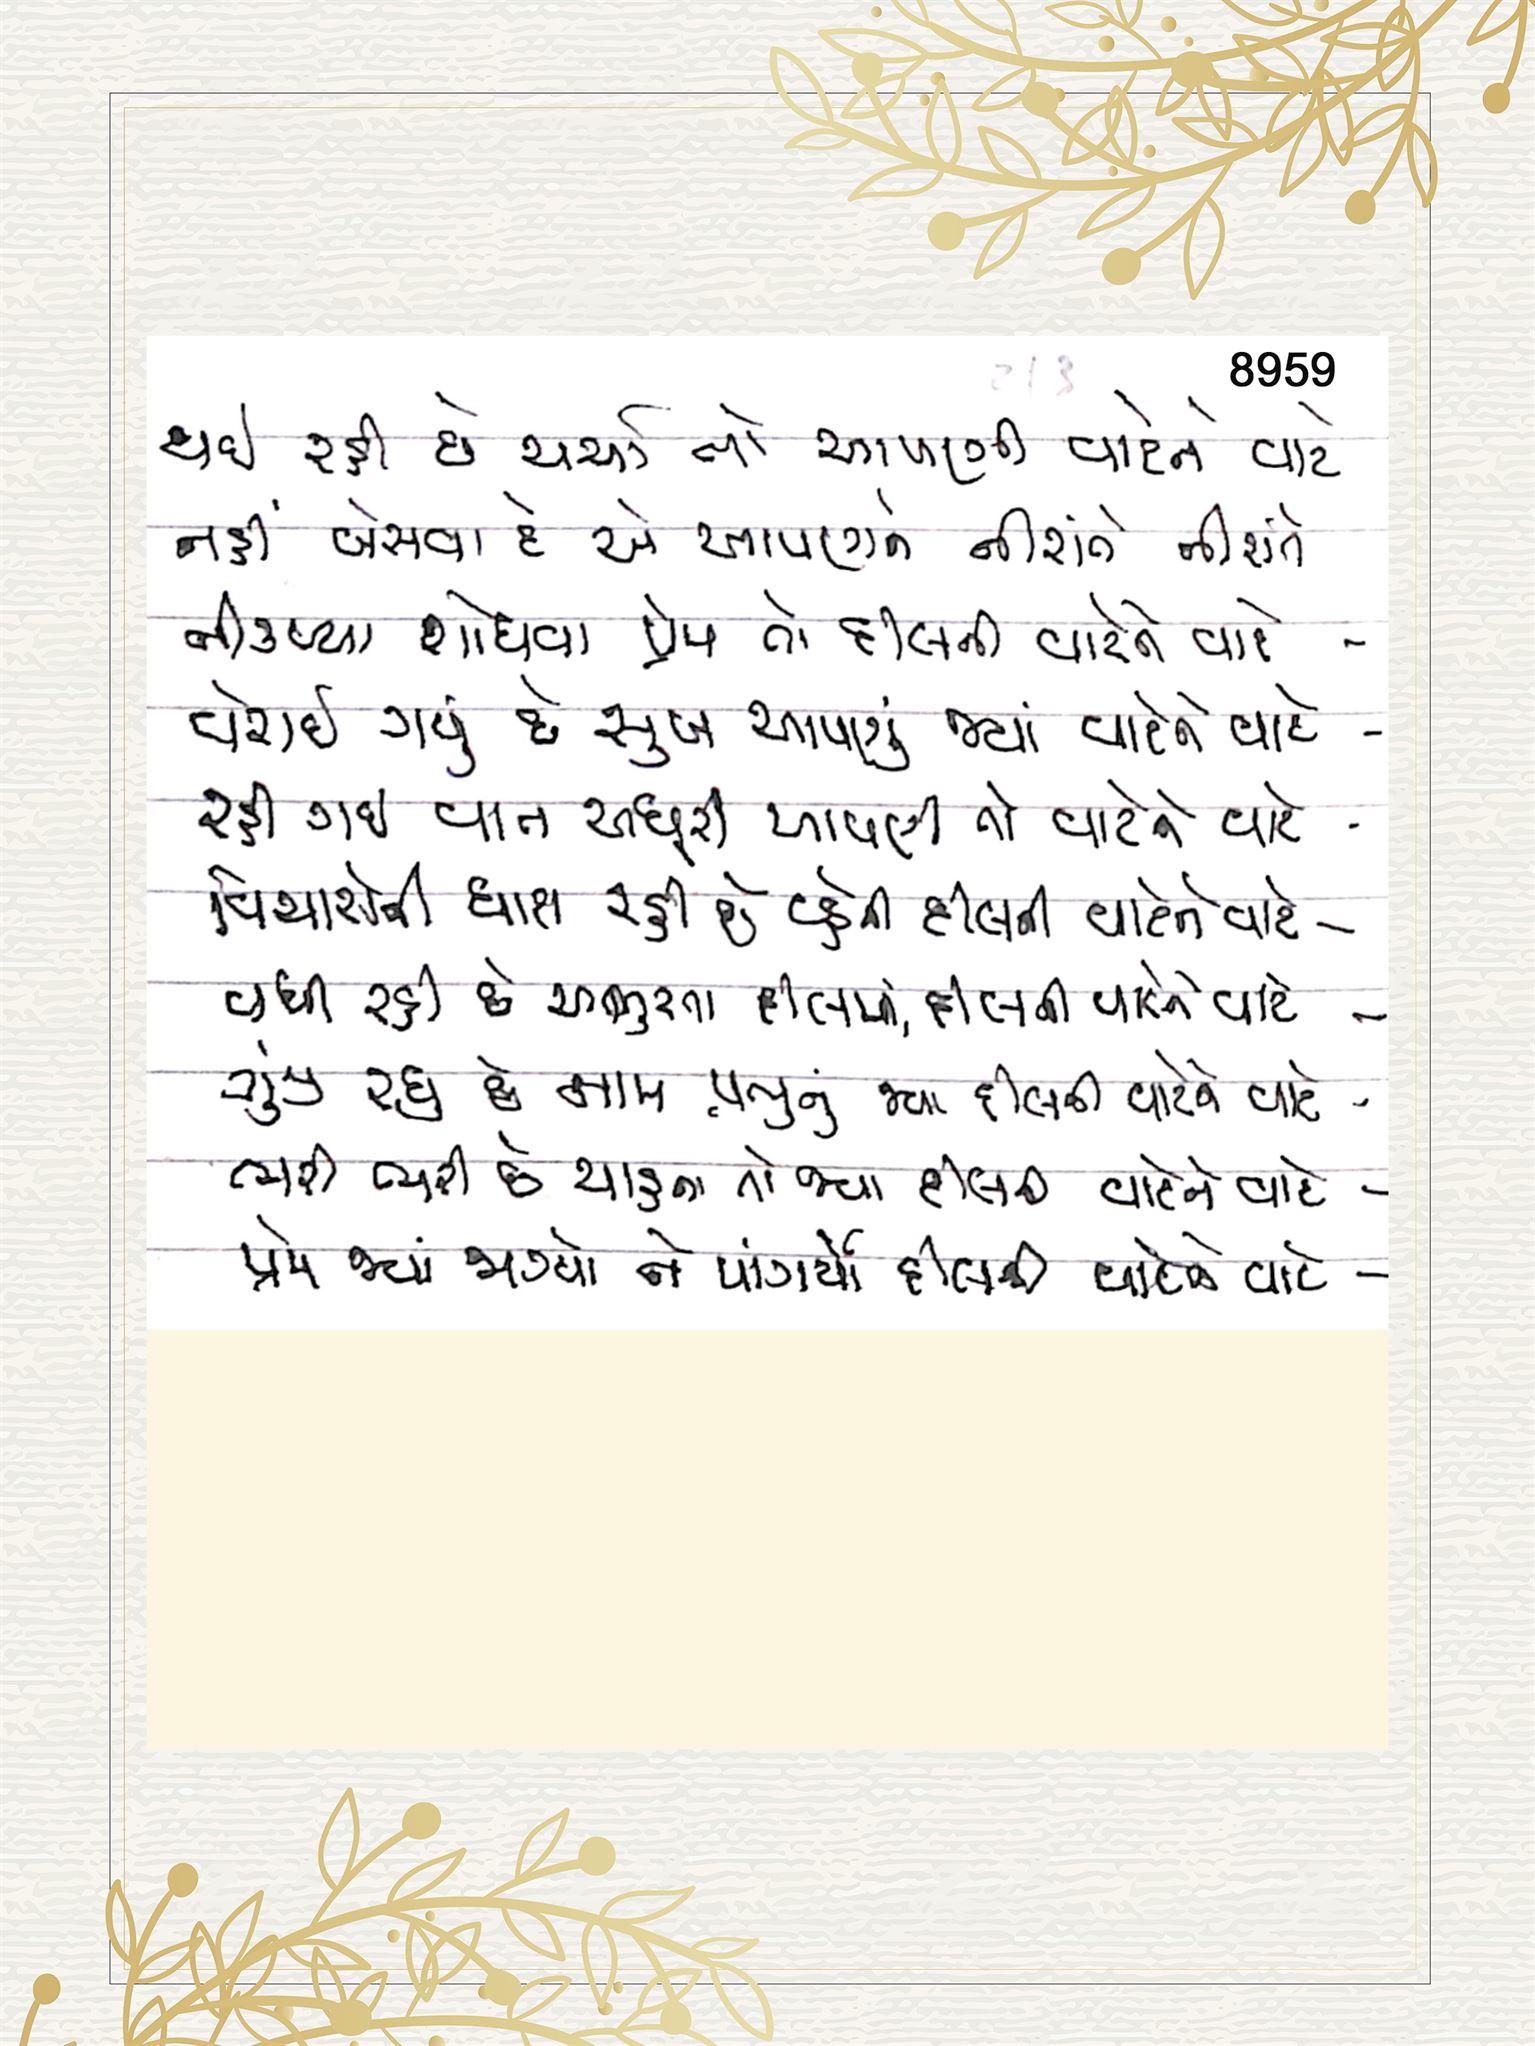 8959
થઈ રહી છે ચર્ચા તો આપણી વાટેને વાટે
નહીં બેસવા દે એ આપણને નીરાંતે નીરાંતે
નીકળ્યા શોધવા પ્રેમ તો દીલની વાટેને વાટે -
વેરાઈ ગયું છે સુખ આપણું જ્યાં વાટેને વાટે -
રહી ગઈ વાત અધૂરી આપણી તો વાટેને વાટે -
વિચારોની ધારા રહી છે વહેતી દીલની વાટેને વાટે -
વધી રહી છે આતુરતા દીલમાં, દીલની વાટેને વાટે -
ગુંજી રહ્યું છે નામ પ્રભુનું જ્યાં દીલની વાટેને વાટે -
ભરી ભરી છે ભાવના તો જ્યાં દીલની વાટેને વાટે -
પ્રેમ જ્યાં જાગ્યો ને પાંગર્યો દીલની વાટેને વાટે -